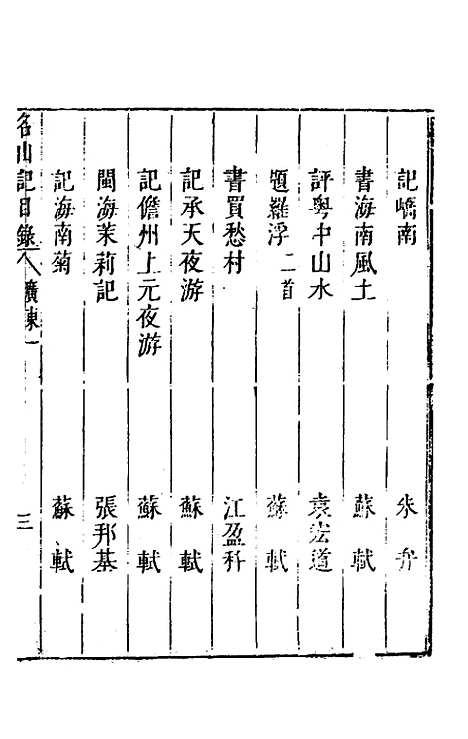 記嶠南 朱弁
書海南風土 蘇軾
評粤中山水 袁宏道
題羅浮二首 蘇軾
書買愁村 江盈科
記承天夜游 蘇軾
記儋州上元夜游 蘇軾
閩海茉莉記 張邦基
記海南菊 蘇軾
名山記目錄 廣東一 三